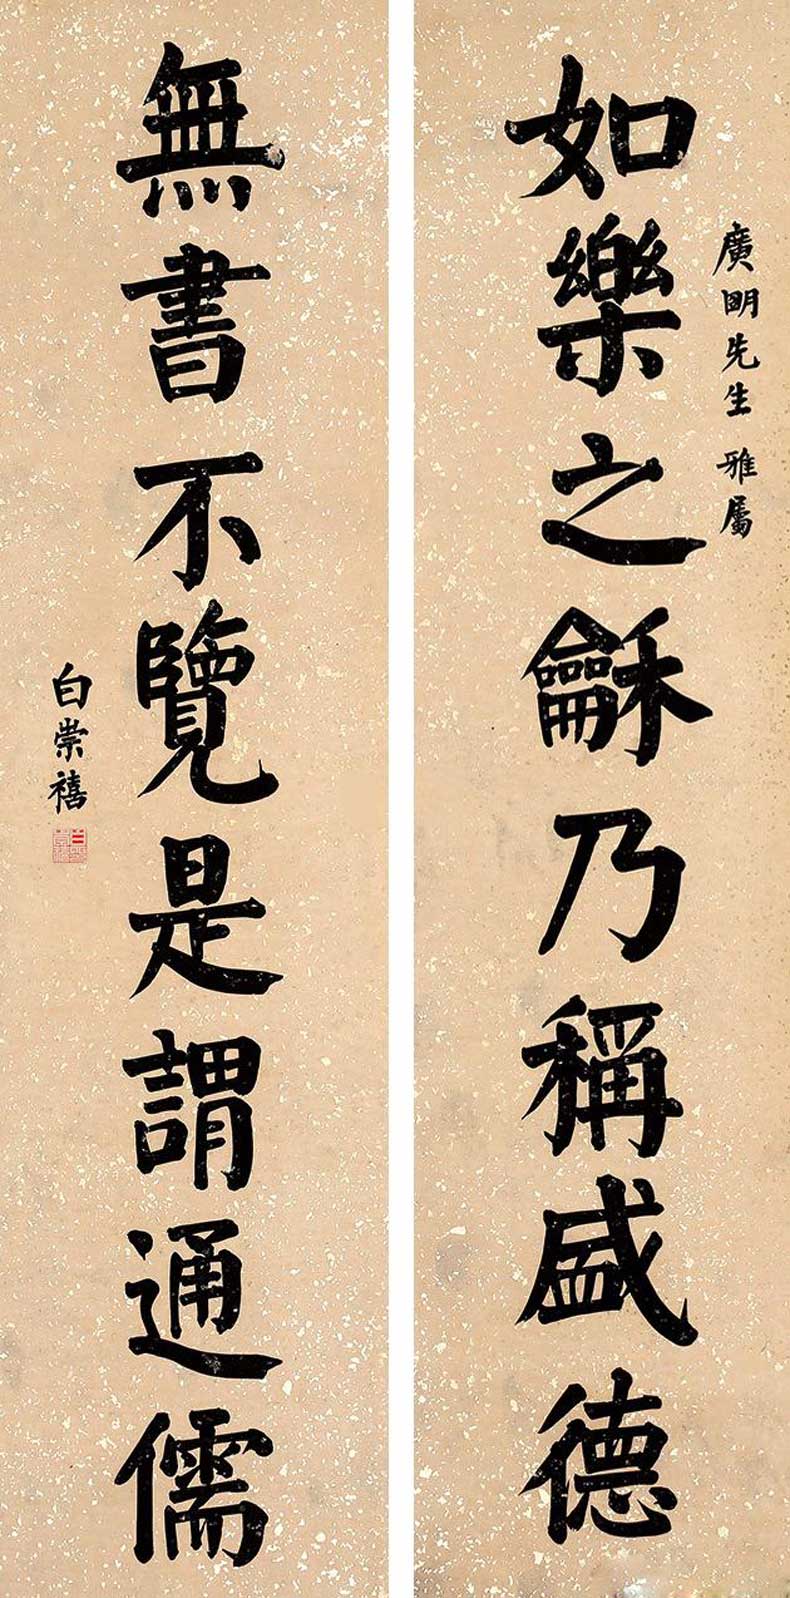 廣明先生雅屬
如樂之龢乃稱盛德
無書不覽是謂通儒
白崇禧